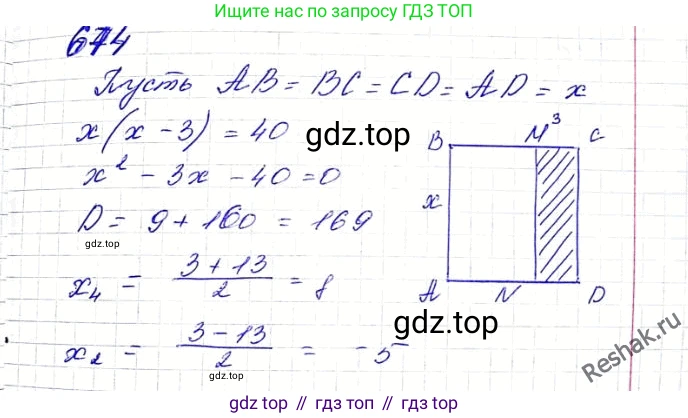 Ищите нас по запросу ГДЗ ТОП
674
Пусть AB = BC = CD = AD = x
x(x - 3) = 40
gdz.top
x² - 3x - 40 = 0
D = 9 + 160 = 169
gdz.top
x₁ = 3 + 13 / 2 = 8
x₂ = 3 - 13 / 2 = -5
gdz.top
gdz.top
B M 3 C
x
A N D
Reshak.ru
gdz.top // гдз.топ // gdz.top // гдз.топ